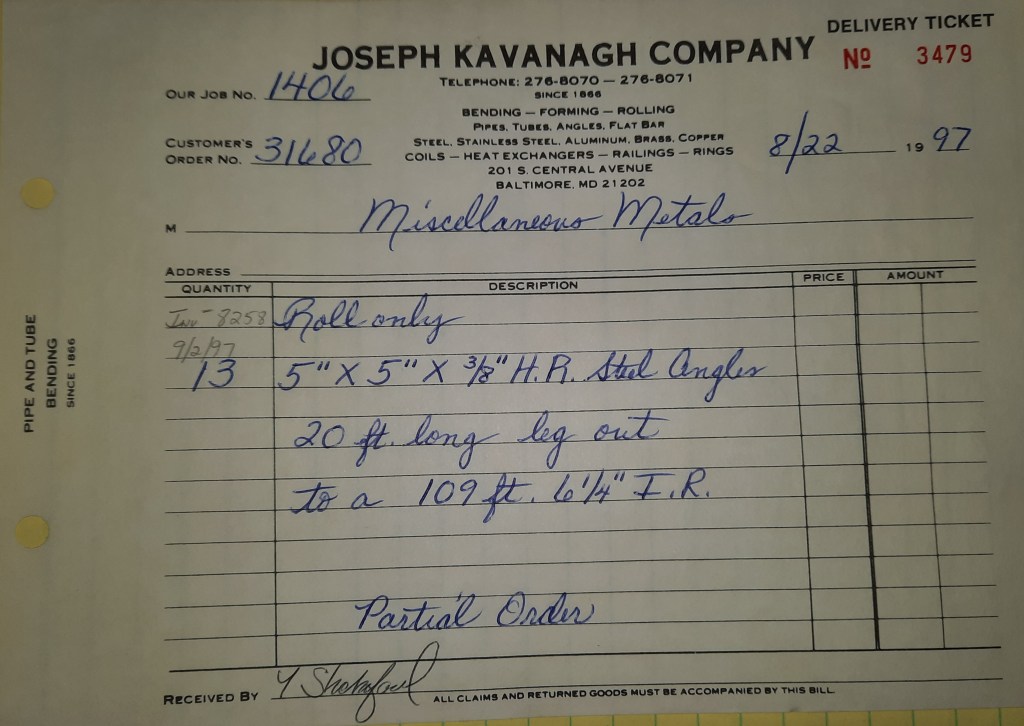 DELIVERY TICKET
JOSEPH KAVANAGH COMPANY
Nº 3479
TELEPHONE: 276-8070 — 276-8071
SINCE 1866
OUR JOB NO. 1406
BENDING — FORMING — ROLLING
PIPES, TUBES, ANGLES, FLAT BAR
STEEL, STAINLESS STEEL, ALUMINUM, BRASS, COPPER
COILS — HEAT EXCHANGERS — RAILINGS — RINGS
201 S. CENTRAL AVENUE
BALTIMORE, MD 21202
CUSTOMER'S
ORDER NO. 31680
8/22 19 97
M Miscellaneous Metals
ADDRESS
QUANTITY DESCRIPTION PRICE AMOUNT
Inv - 8258 Roll only
9/2/97
13 5" X 5" X 3/8" H.R. Steel Angles
20 ft. long leg out
to a 109 ft. 6 1/4" I.R.
Partial Order
RECEIVED BY
ALL CLAIMS AND RETURNED GOODS MUST BE ACCOMPANIED BY THIS BILL
PIPE AND TUBE
BENDING
SINCE 1866